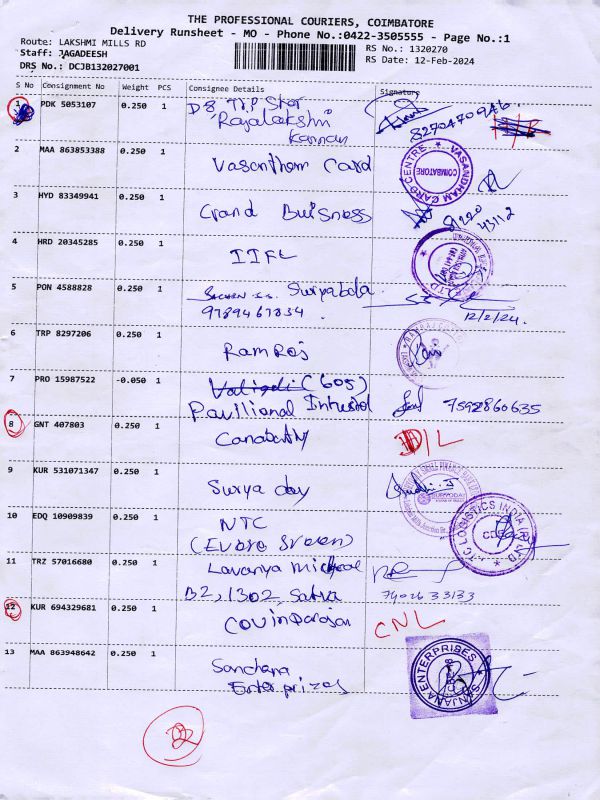 THE PROFESSIONAL COURIERS, COIMBATORE
Delivery Runsheet - MO - Phone No.:0422-3505555 - Page No.:1
Route: LAKSHMI MILLS RD
RS No.: 1320270
Staff: JAGADEESH
RS Date: 12-Feb-2024
DRS No.: DCJB132027001
S No Consignment No Weight PCS Consignee Details Signature
1 PDK 5053107 0.250 1
Rajalakshmi
Kannan
8270470946
2 MAA 863853388 0.250 1 Vasantham Card
VASANDHAM CARD CENTRE * COIMBATORE *
3 HYD 83349941 0.250 1 Grand Buisness 81220
43112
4 HRD 20345285 0.250 1 IIFL
5 PON 4588828 0.250 1 Suryabala
9789467834 12/2/24.
6 TRP 8297206 0.250 1 Ramraj
7 PRO 15987522 -0.050 1 (605)
Pavilional 7592860635
8 GNT 407803 0.250 1 D/L
9 KUR 531071347 0.250 1 Surya day
10 EDQ 10909839 0.250 1 NTC
TC LOGISTICS INDIA (P) LTD
11 TRZ 57016680 0.250 1 Lavanya
B2, 1302, Satva
12 KUR 694329681 0.250 1 Covindarajan CNL
13 MAA 863948642 0.250 1 Sanchana
Enterprizes
SANJANA ENTERPRISES